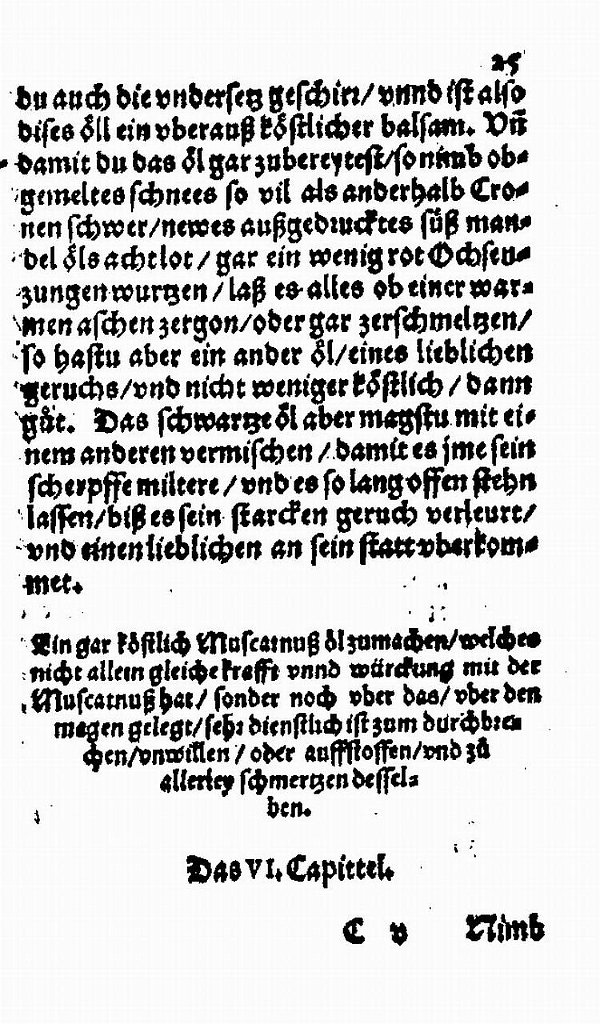 25
du auch die vndersetz geschirr/ vnnd ist also
dises öll ein vberauß köstlicher balsam. Vñ
damit du das öl gar zubereytest/so nimb ob-
gemeltes schnees so vil als anderhalb Cro-
nen schwer/newes außgedrucktes süß man-
del öls acht lot/ gar ein wenig rot Ochsen-
zungen wurtzen/ laß es alles ob einer war-
men aschen zergon/oder gar zerschmeltzen/
so hastu aber ein ander öl/eines lieblichen
geruchs/vnd nicht weniger köstlich/ dann
gůt. Das schwartze öl aber magstu mit ei-
nem anderen vermischen/ damit es jme sein
scherpffe miltere/ vnd es so lang offen stehn
lassen/biß es sein starcken geruch verleurt/
vnd einen lieblichen an sein statt vberkom-
met.
Ein gar köstlich Muscatnuß öl zumachen/welches
nicht allein gleiche krafft vnnd würckung mit der
Muscatnuß hat/ sonder noch vber das/ vber den
magen gelegt/ sehr dienstlich ist zum durchbre-
chen/vnwillen/ oder auffstossen/vnd zů
allerley schmertzen dessel-
ben.
Das VI. Capittel.
C v Nimb